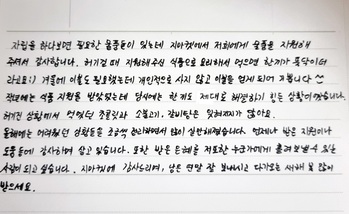 자립을 하다보면 필요한 물품들이 있는데 지마켓에서 저희에게 물품을 지원해
주셔서 감사합니다. 허기질 때 지원해주신 식품으로 요리해서 먹으면 한끼가 뚝딱이더
라고요:) 겨울에 이불도 필요했는데 개인적으로 사지 않고 이불을 얻게 되어 기쁩니다
작년에는 식품 지원을 받았었는데 당시에는 한끼도 제대로 해결하기 힘든 상황이었습니다.
허기진 상황에서 먹었던 소불고기, 갈비탕은 잊혀지지가 않아요.
올해에는 어려웠던 상황들을 조금씩 많이 해결했습니다. 언제나 받은 지원이나
도움들에 감사하며 살고 있습니다. 또한 받은 은혜를 저또한 누군가에게 흘려보낼 수 있는
사람이 되고 싶습니다. 지마켓에 감사드리며, 남은 연말 잘 보내시고 다가오는 새해 복 많이
받으세요.